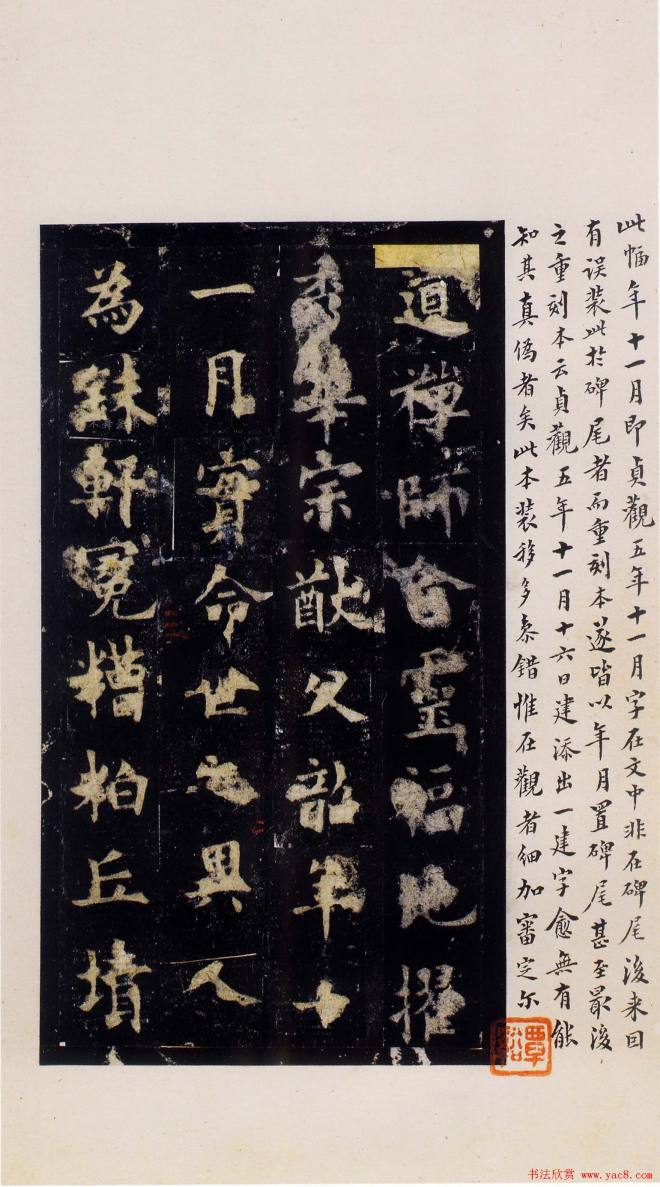 此幅年十一月即貞觀五年十一月字在文中非在碑尾後来回
有误装此於碑尾者而重刻本遂皆以年月置碑尾甚至最後
之重刻本云貞觀五年十一月十六日建添出一建字愈無有能
知其真偽者矣此本装移多叅錯惟在觀者细加審定尔
覃谿
道禅師合靈福地擢
秀華宗猷父韶年十
一月實命世之異人
為銖軒冕糟粕丘墳
书法欣赏 www.yac8.com